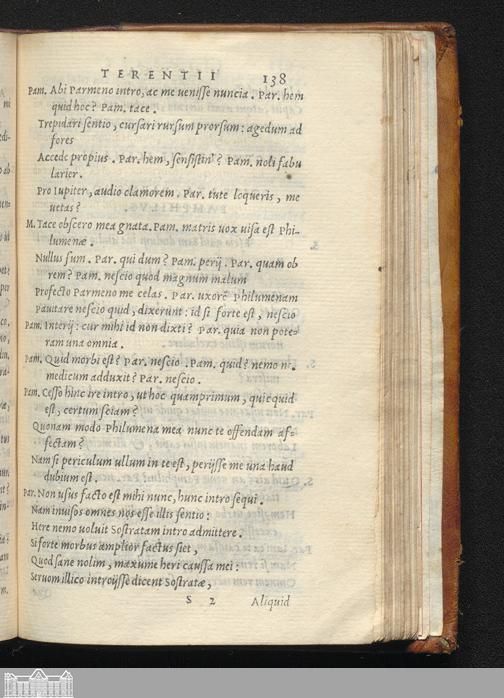 TERENTII 138
Pam. Abi Parmeno intro, ac me uenisse nuncia. Par. hem
quid hoc? Pam. tace.
Trepidari sentio, cursari rursum prorsum: agedum ad
fores
Accede propius. Par. hem, sensistin'? Pam. noli fabu
larier.
Pro Iupiter, audio clamorem. Par. tute loqueris, me
uetas?
M. Tace obsecro mea gnata. Pam. matris uox uisa est Phi-
lumenæ.
Nullus sum. Par. qui dum? Pam. perij. Par. quam ob
rem? Pam. nescio quod magnum malum
Profecto Parmeno me celas. Par. uxorē Philumenam
Pauitare nescio quid, dixerunt: id si forte est, nescio
Pam. Interij: cur mihi id non dixti? Par. quia non pote-
ram una omnia.
Pam. Quid morbi est? Par. nescio. Pam. quid? nemo ne
medicum adduxit? Par. nescio.
Pam. Cesso hinc ire intro, ut hoc quamprimum, quicquid
est, certum sciam?
Quonam modo Philumena mea nunc te offendam af-
fectam?
Nam si periculum ullum in te est, perijsse me una haud
dubium est.
Par. Non usus facto est mihi nunc, hunc intro sequi.
Nam inuisos omnes nos esse illis sentio:
Here nemo uoluit Sostratam intro admittere.
Si forte morbus amplior factus siet,
Quod sane nolim, maxume heri caussa mei:
Seruom illico introijsse dicent Sostratæ,
S 2 Aliquid